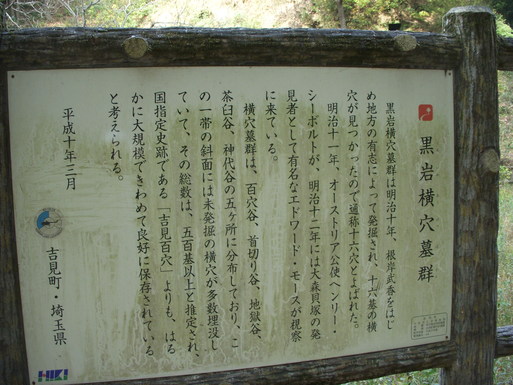 黒岩横穴墓群
黒岩横穴墓群は明治十年、根岸武香をはじ
め地方の有志によって発掘され、十六基の横
穴が見つかったので通称十六穴とよばれた。
明治十一年、オーストリア公使ヘンリー・
シーボルトが、明治十二年には大森貝塚の発
見者として有名なエドワード・モースが視察
に来ている。
横穴墓群は、百穴谷、首切り谷、地獄谷、
茶臼谷、神代谷の五ヶ所に分布しており、こ
の一帯の斜面には未発掘の横穴が多数埋没し
ていて、その総数は、五百基以上と推定され、
国指定史跡である「吉見百穴」よりも、はる
かに大規模できわめて良好に保存されている
と考えられる。
平成十年三月
吉見町・埼玉県
HIKI